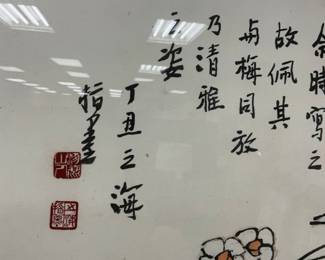 余時寫之
故佩其
与梅同放
乃清雅
之姿
丁丑之海
指畫